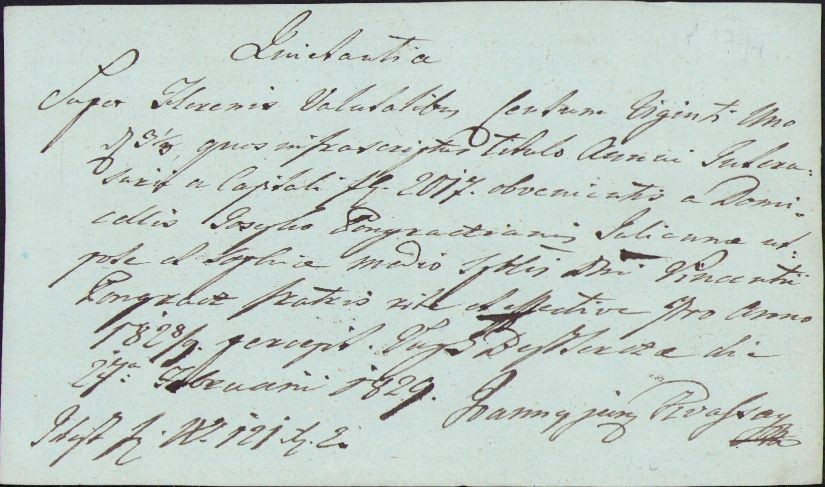 Quietantia
Super Florenis Valutalibus Centum Viginti Uno
quos infrascriptus titulo Annui Interu-
surii a Capitali fl. 2017. obvenientis a Domi-
cellis Josepho Pongraczianis Julianna ut-
pote et Sophia medio Sptlis Dni Vincentii
Pongracz fratris rite et effective pro Anno
1828/9 percepit. die
27a Februarii 1829.
Joannes
Id est fl. W. 121 2.